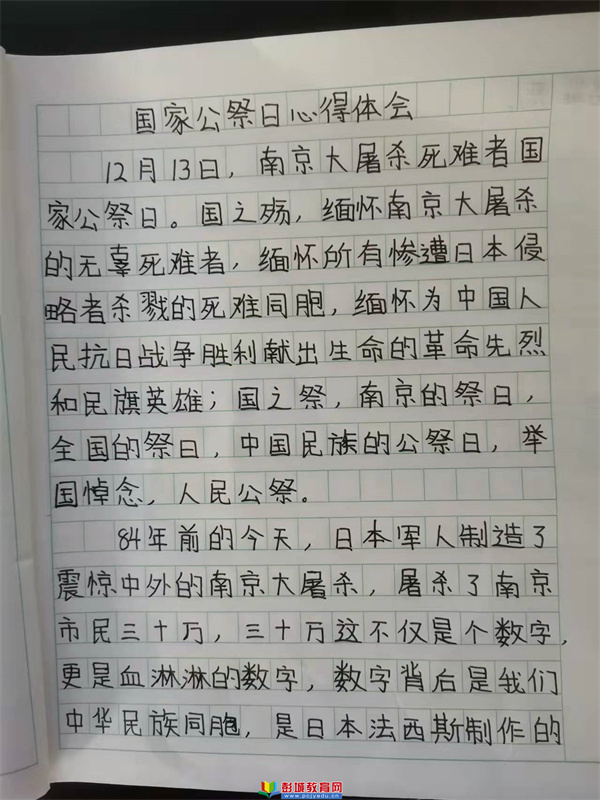 国家公祭日心得体会
12月13日，南京大屠杀死难者国
家公祭日。国之殇，缅怀南京大屠杀
的无辜死难者，缅怀所有惨遭日本侵
略者杀戮的死难同胞，缅怀为中国人
民抗日战争胜利献出生命的革命先烈
和民旗英雄；国之祭，南京的祭日，
全国的祭日，中国民族的公祭日，举
国悼念，人民公祭。
84年前的今天，日本军人制造了
震惊中外的南京大屠杀，屠杀了南京
市民三十万，三十万这不仅是个数字，
更是血淋淋的数字，数字背后是我们
中华民族同胞，是日本法西斯制作的
彭城教育网
www.pcjyedu.cn